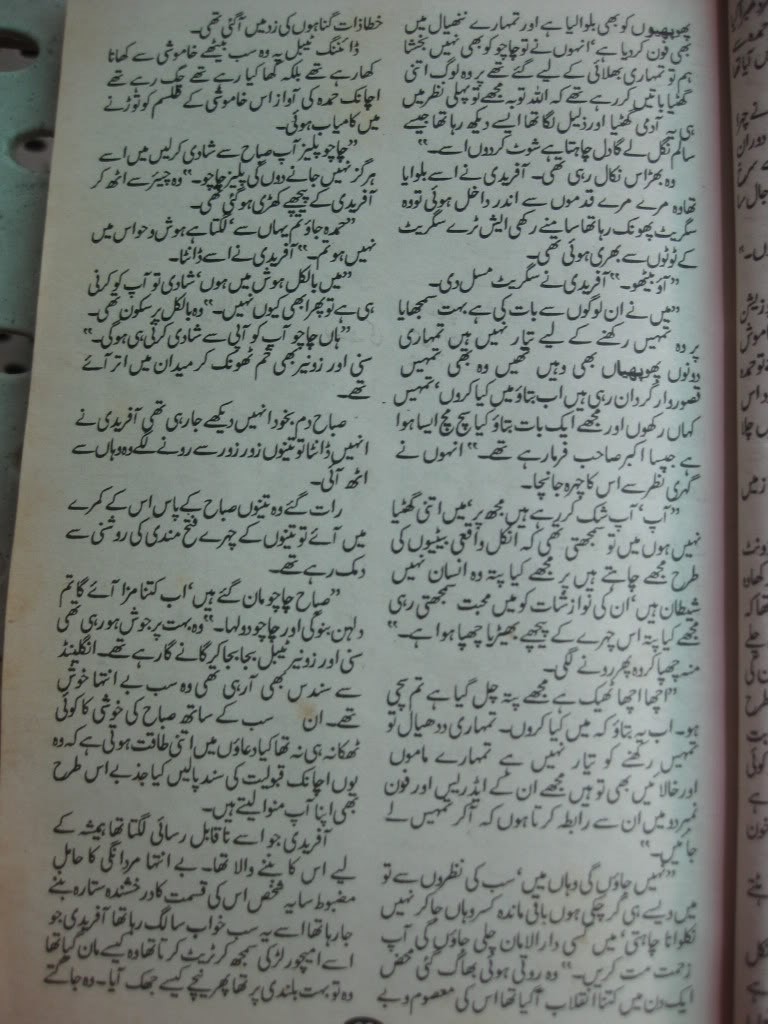 پھوپھیوں کو بھی بلوالیا ہے اور تمہارے ننھیال میں
بھی فون کردیا ہے‘ انہوں نے تو چاچو کو بھی نہیں بخشا
ہم تو تمہاری بھلائی کے لیے گئے تھے پر وہ لوگ اتنی
گھٹیا باتیں کررہے تھے کہ اللہ توبہ مجھے تو پہلی نظر میں
ہی یہ آدمی گھٹیا اور ذلیل لگا تھا ایسے دیکھ رہا تھا جیسے
سالم نگل لے گا دل چاہتا ہے شوٹ کردوں اسے۔“
وہ بھڑاس نکال رہی تھی۔ آفریدی نے اسے بلوایا
تھا وہ مرے مرے قدموں سے اندر داخل ہوئی تو وہ
سگریٹ پھونک رہا تھا سامنے رکھی ایش ٹرے سگریٹ
کے ٹوٹوں سے بھری ہوئی تھی۔
”آؤ بیٹھو۔“ آفریدی نے سگریٹ مسل دی۔
”میں نے ان لوگوں سے بات کی ہے بہت سمجھایا
پر وہ تمہیں رکھنے کے لیے تیار نہیں ہیں تمہاری
دونوں پھوپھیاں بھی وہیں تھیں وہ بھی تمہیں
قصوروار گردان رہی ہیں اب بتاؤ میں کیا کروں‘ تمہیں
کہاں رکھوں اور مجھے ایک بات بتاؤ کیا سچ مچ ایسا ہوا
ہے جیسا اکبر صاحب فرما رہے تھے۔“ انہوں نے
گہری نظر سے اس کا چہرہ جانچا۔
”آپ‘ آپ شک کررہے ہیں مجھ پر‘ میں اتنی گھٹیا
نہیں ہوں میں تو سمجھتی تھی کہ انکل واقعی بیٹیوں کی
طرح مجھے چاہتے ہیں پر مجھے کیا پتہ وہ انسان نہیں
شیطان ہیں‘ ان کی نوازشات کو میں محبت سمجھتی رہی
مجھے کیا پتہ اس چہرے کے پیچھے بھیڑیا چھپا ہوا ہے۔“
منہ چھپا کر وہ پھر رونے لگی۔
”اچھا اچھا ٹھیک ہے مجھے پتہ چل گیا ہے تم سچی
ہو۔ اب یہ بتاؤ کہ میں کیا کروں۔ تمہاری ددھیال تو
تمہیں رکھنے کو تیار نہیں ہے تمہارے ماموں
اور خالائیں بھی تو ہیں مجھے ان کے ایڈریس اور فون
نمبر دو میں ان سے رابطہ کرتا ہوں کہ آکر تمہیں لے
جائیں۔“
”نہیں جاؤں گی وہاں میں‘ سب کی نظروں سے تو
میں ویسے ہی گر چکی ہوں باقی ماندہ کسر وہاں جاکر نہیں
نکلوانا چاہتی‘ میں کسی دارالامان چلی جاؤں گی آپ
زحمت مت کریں۔“ وہ روتی ہوئی بھاگ گئی محض
ایک دن میں کتنا انقلاب آگیا تھا اس کی معصوم و بے
خطا ذات گناہوں کی زد میں آگئی تھی۔
ڈائننگ ٹیبل پہ وہ سب بیٹھے خاموشی سے کھانا
کھارہے تھے بلکہ کھا کیا رہے تھے چگ رہے تھے
اچانک حمدہ کی آواز اس خاموشی کے طلسم کو توڑنے
میں کامیاب ہوئی۔
”چاچو پلیز آپ صباح سے شادی کرلیں میں اسے
ہرگز نہیں جانے دوں گی پلیز چاچو۔“ وہ چیئر سے اٹھ کر
آفریدی کے پیچھے کھڑی ہوگئی تھی۔
”حمدہ جاؤ تم یہاں سے‘ لگتا ہے ہوش و حواس میں
نہیں ہو تم۔“ آفریدی نے اسے ڈانٹا۔
”میں بالکل ہوش میں ہوں‘ شادی تو آپ کو کرنی
ہی ہے تو پھر ابھی کیوں نہیں۔“ وہ بالکل پرسکون تھی۔
”ہاں چاچو آپ کو آپی سے شادی کرنی ہی ہوگی۔“
سنی اور زونیر بھی خم ٹھونک کر میدان میں اتر آئے
تھے۔
صباح دم بخود انہیں دیکھے جارہی تھی آفریدی نے
انہیں ڈانٹا تو تینوں زور زور سے رونے لگے وہ وہاں سے
اٹھ آئی۔
رات گئے وہ تینوں صباح کے پاس اس کے کمرے
میں آئے تو تینوں کے چہرے فتح مندی کی روشنی سے
دمک رہے تھے۔
”صباح چاچو مان گئے ہیں‘ اب کتنا مزا آئے گا تم
دلہن بنو گی اور چاچو دولہا۔“ وہ بہت پرجوش ہورہی تھی
سنی اور زونیر ٹیبل بجا بجا کر گانے گارہے تھے۔ انگلینڈ
سے سندس بھی آرہی تھی وہ سب بے انتہا خوش
تھے۔ ان سب کے ساتھ صباح کی خوشی کا کوئی
ٹھکانہ ہی نہ تھا کیا دعاؤں میں اتنی طاقت ہوتی ہے کہ وہ
یوں اچانک قبولیت کی سند پالیں کیا جذبے اس طرح
بھی اپنا آپ منوا لیتے ہیں۔
آفریدی جو اسے ناقابل رسائی لگتا تھا ہمیشہ کے
لیے اس کا بننے والا تھا۔ بے انتہا مردانگی کا حامل
مضبوط سا یہ شخص اس کی قسمت کا درخشندہ ستارہ بننے
جارہا تھا اسے یہ سب خواب سا لگ رہا تھا آفریدی جو
اسے امیچور لڑکی سمجھ کر ٹریٹ کرتا تھا وہ کیسے مان گیا تھا
وہ تو بہت بلندی پر تھا پھر نیچے کیسے جھک آیا۔ وہ جاگتے